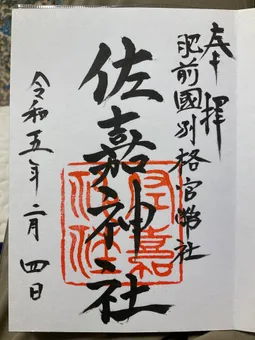 奉拝
肥前國別格官幣社
佐嘉神社
佐嘉神社
令和五年二月四日